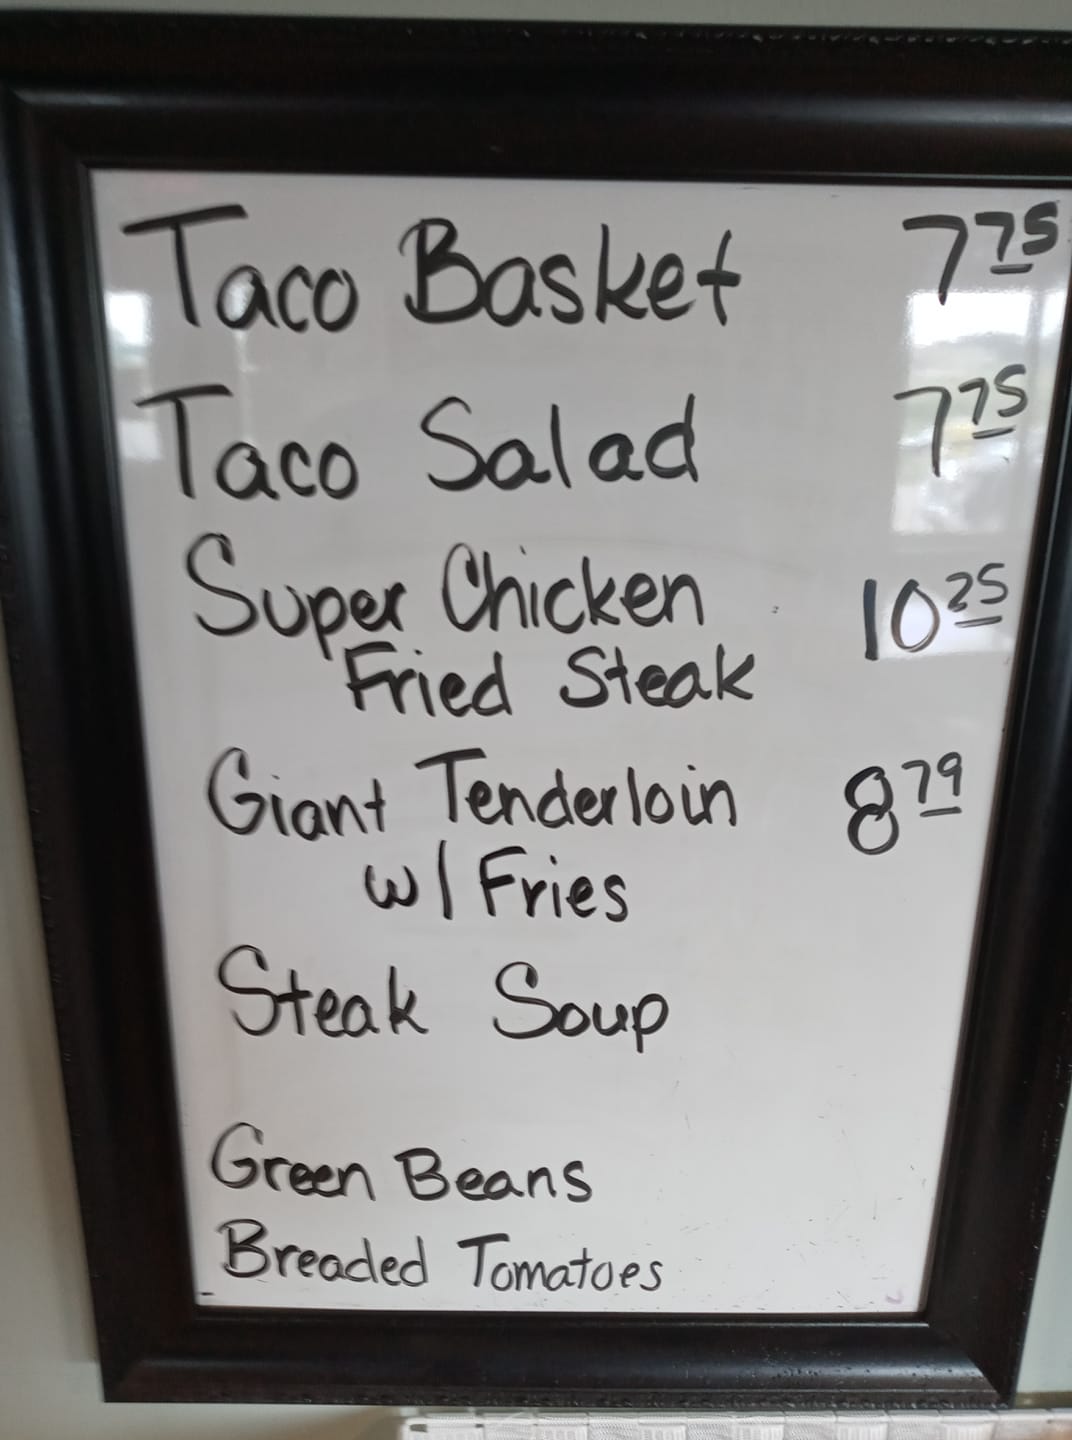 Taco Basket 7 75
Taco Salad 7 75
Super Chicken 10 25
Fried Steak
Giant Tenderloin 8 79
w/ Fries
Steak Soup
Green Beans
Breaded Tomatoes